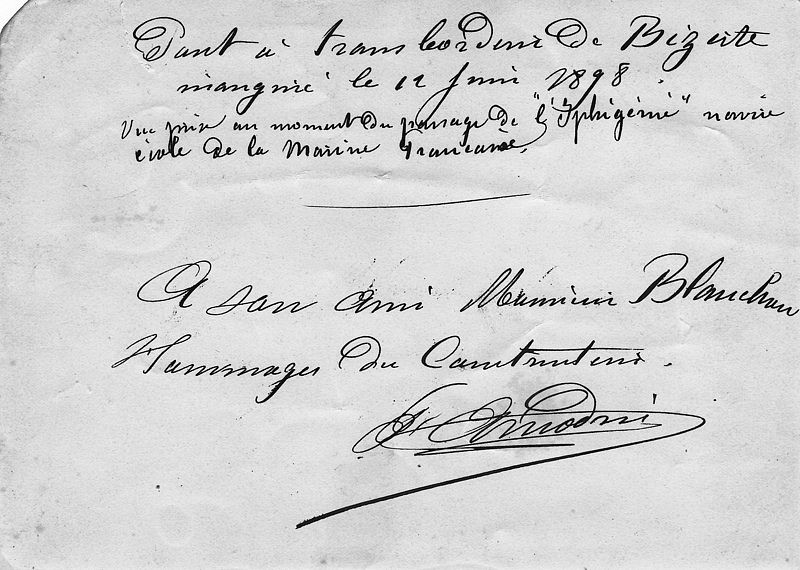 Pont à transbordeur de Bizerte
inauguré le 12 Juin 1898.
Vue prise au moment du passage de "l'Iphigénie" navire
école de la Marine Française.
A son ami Monsieur Blanchon
Hommages du Constructeur.
F. Arnodin